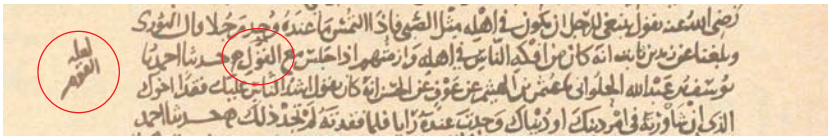 رضى الله عنه يقول ينبغي للرجل ان يكون في اهله مثل الصبى فاذا التمس ما عنده وجد رجلا وقال الثورى
وبلغنا عن زيد بن ثابت انه كان من افكه الناس في اهله وازمتهم اذا جلس مع القول حدثنا احمد نا
يوسف بن عبد الله الحلوانى نا عثمن بن الهيثم عن عوف عن الحسن انه كان يقول اشد الناس عليك فقدا اخوك
الذى ان شاورته في امر دينك او دنياك وجدت عنده رايا فلما فقدته لم تجد ذلك حدثنا احمد
لعله
القوم